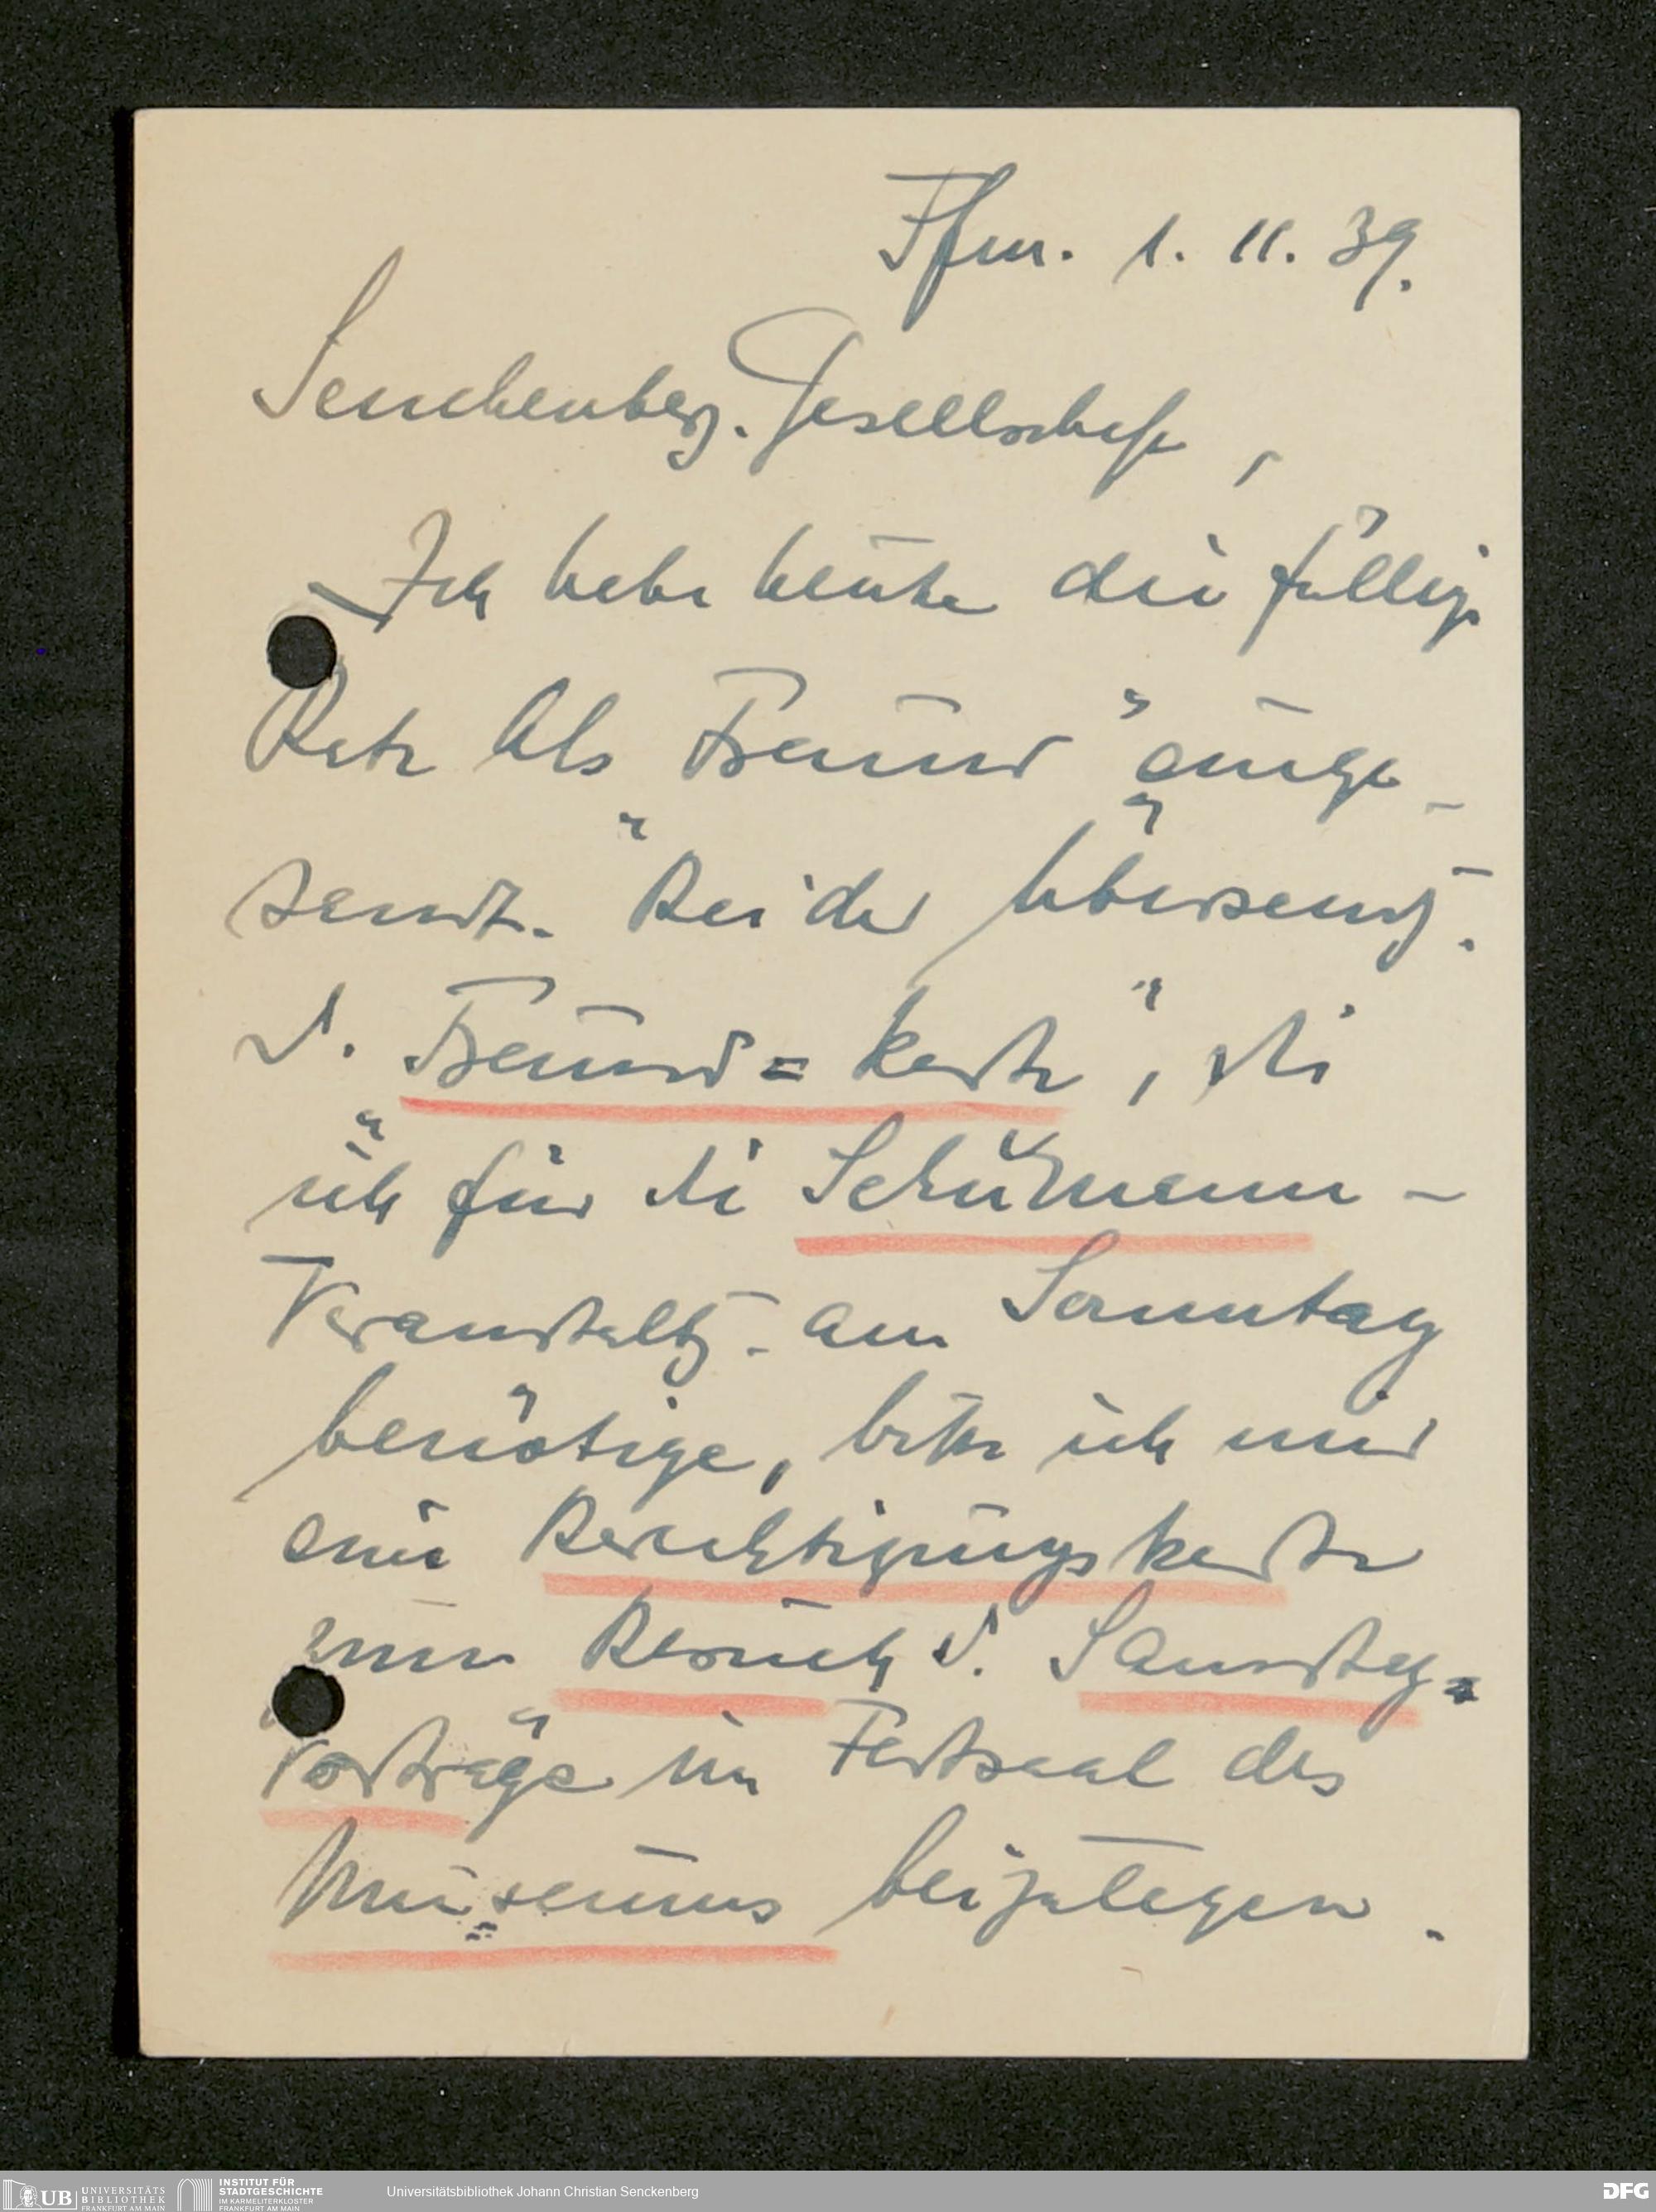 Ffm. 1. 11. 39.
Senckenberg. Gesellschaft,
Ich habe heute die fällige
Rate als "Freund" einge-
sandt. Bei der Übersend̄g.
d. "Freund=karte", die
ich für die Schumann-
Veranstaltg. am Sonntag
benötige, bitte ich mir
eine Berechtigungskarte
zum Besuch d. Samstag=
vorträge im Festsaal des
Museums beizulegen.
UB UNIVERSITÄTS
BIBLIOTHEK
FRANKFURT AM MAIN
INSTITUT FÜR
STADTGESCHICHTE
IM KARMELITERKLOSTER
FRANKFURT AM MAIN
Universitätsbibliothek Johann Christian Senckenberg
DFG